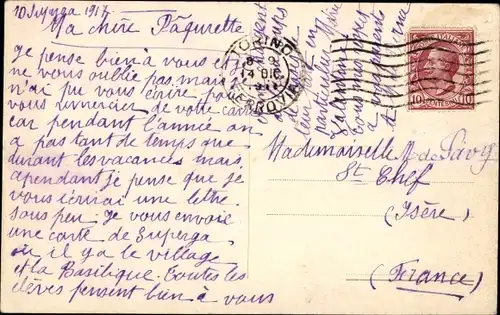 10 Superga 1917
Ma chère Pâqurette
Je pense bien à vous et je
ne vous oublie pas mais
n'ai pu vous écrire pour
vous remercier de votre carte
car pendant l'année on
a pas tant de temps que
durant les vacances mais
cependant je pense que je
vous écrirai une lettre
sous peu. Je vous envoie
une carte de Superga
où il y a le village
et la Basilique. Toutes les
élèves pensent bien à vous
et
particulier Marie
TORINO
14 DIC
FERROVIA
10 CENTESIMI 10
Mademoiselle M. de Savy
St Chef
(Isère)
(France)